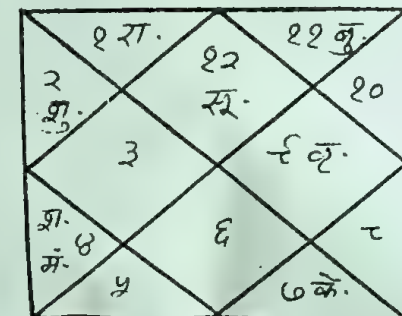 १ रा.
१२
सू.
११ बु.
२
शु.
१०
३
९ वृ.
श.
मं. ४
६
८
५
७ के.